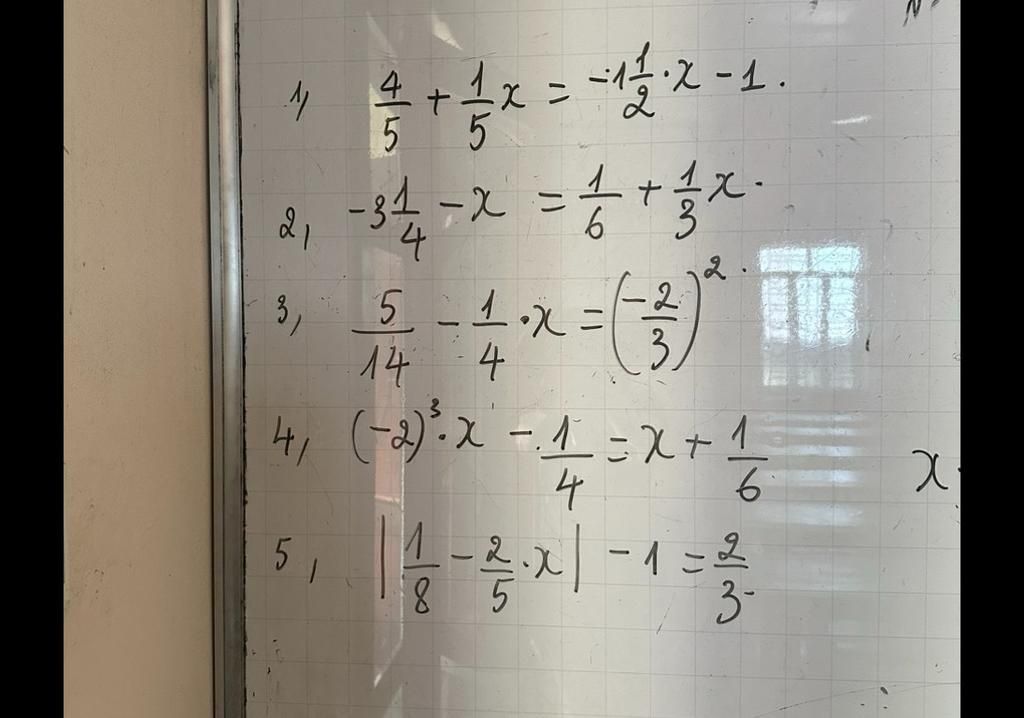 1, 4/5 + 1/5 x = -1 1/2 · x - 1.
2, -3 1/4 - x = 1/6 + 1/3 x.
3, 5/14 - 1/4 · x = (-2/3)².
4, (-2)³ · x - 1/4 = x + 1/6
x
5, |1/8 - 2/5 · x| - 1 = 2/3